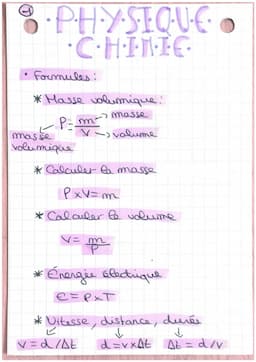 -1-
PHYSIQUE
CHIMIE
• Formules :
* Masse volumique :
P = m/V → masse
→ volume
masse
volumique
* Calculer la masse
P x V = m
* Calculer le volume
V = m/P
* Énergie électrique
E = P x T
* Vitesse, distance, durée
V = d/Δt d = v x Δt Δt = d/v